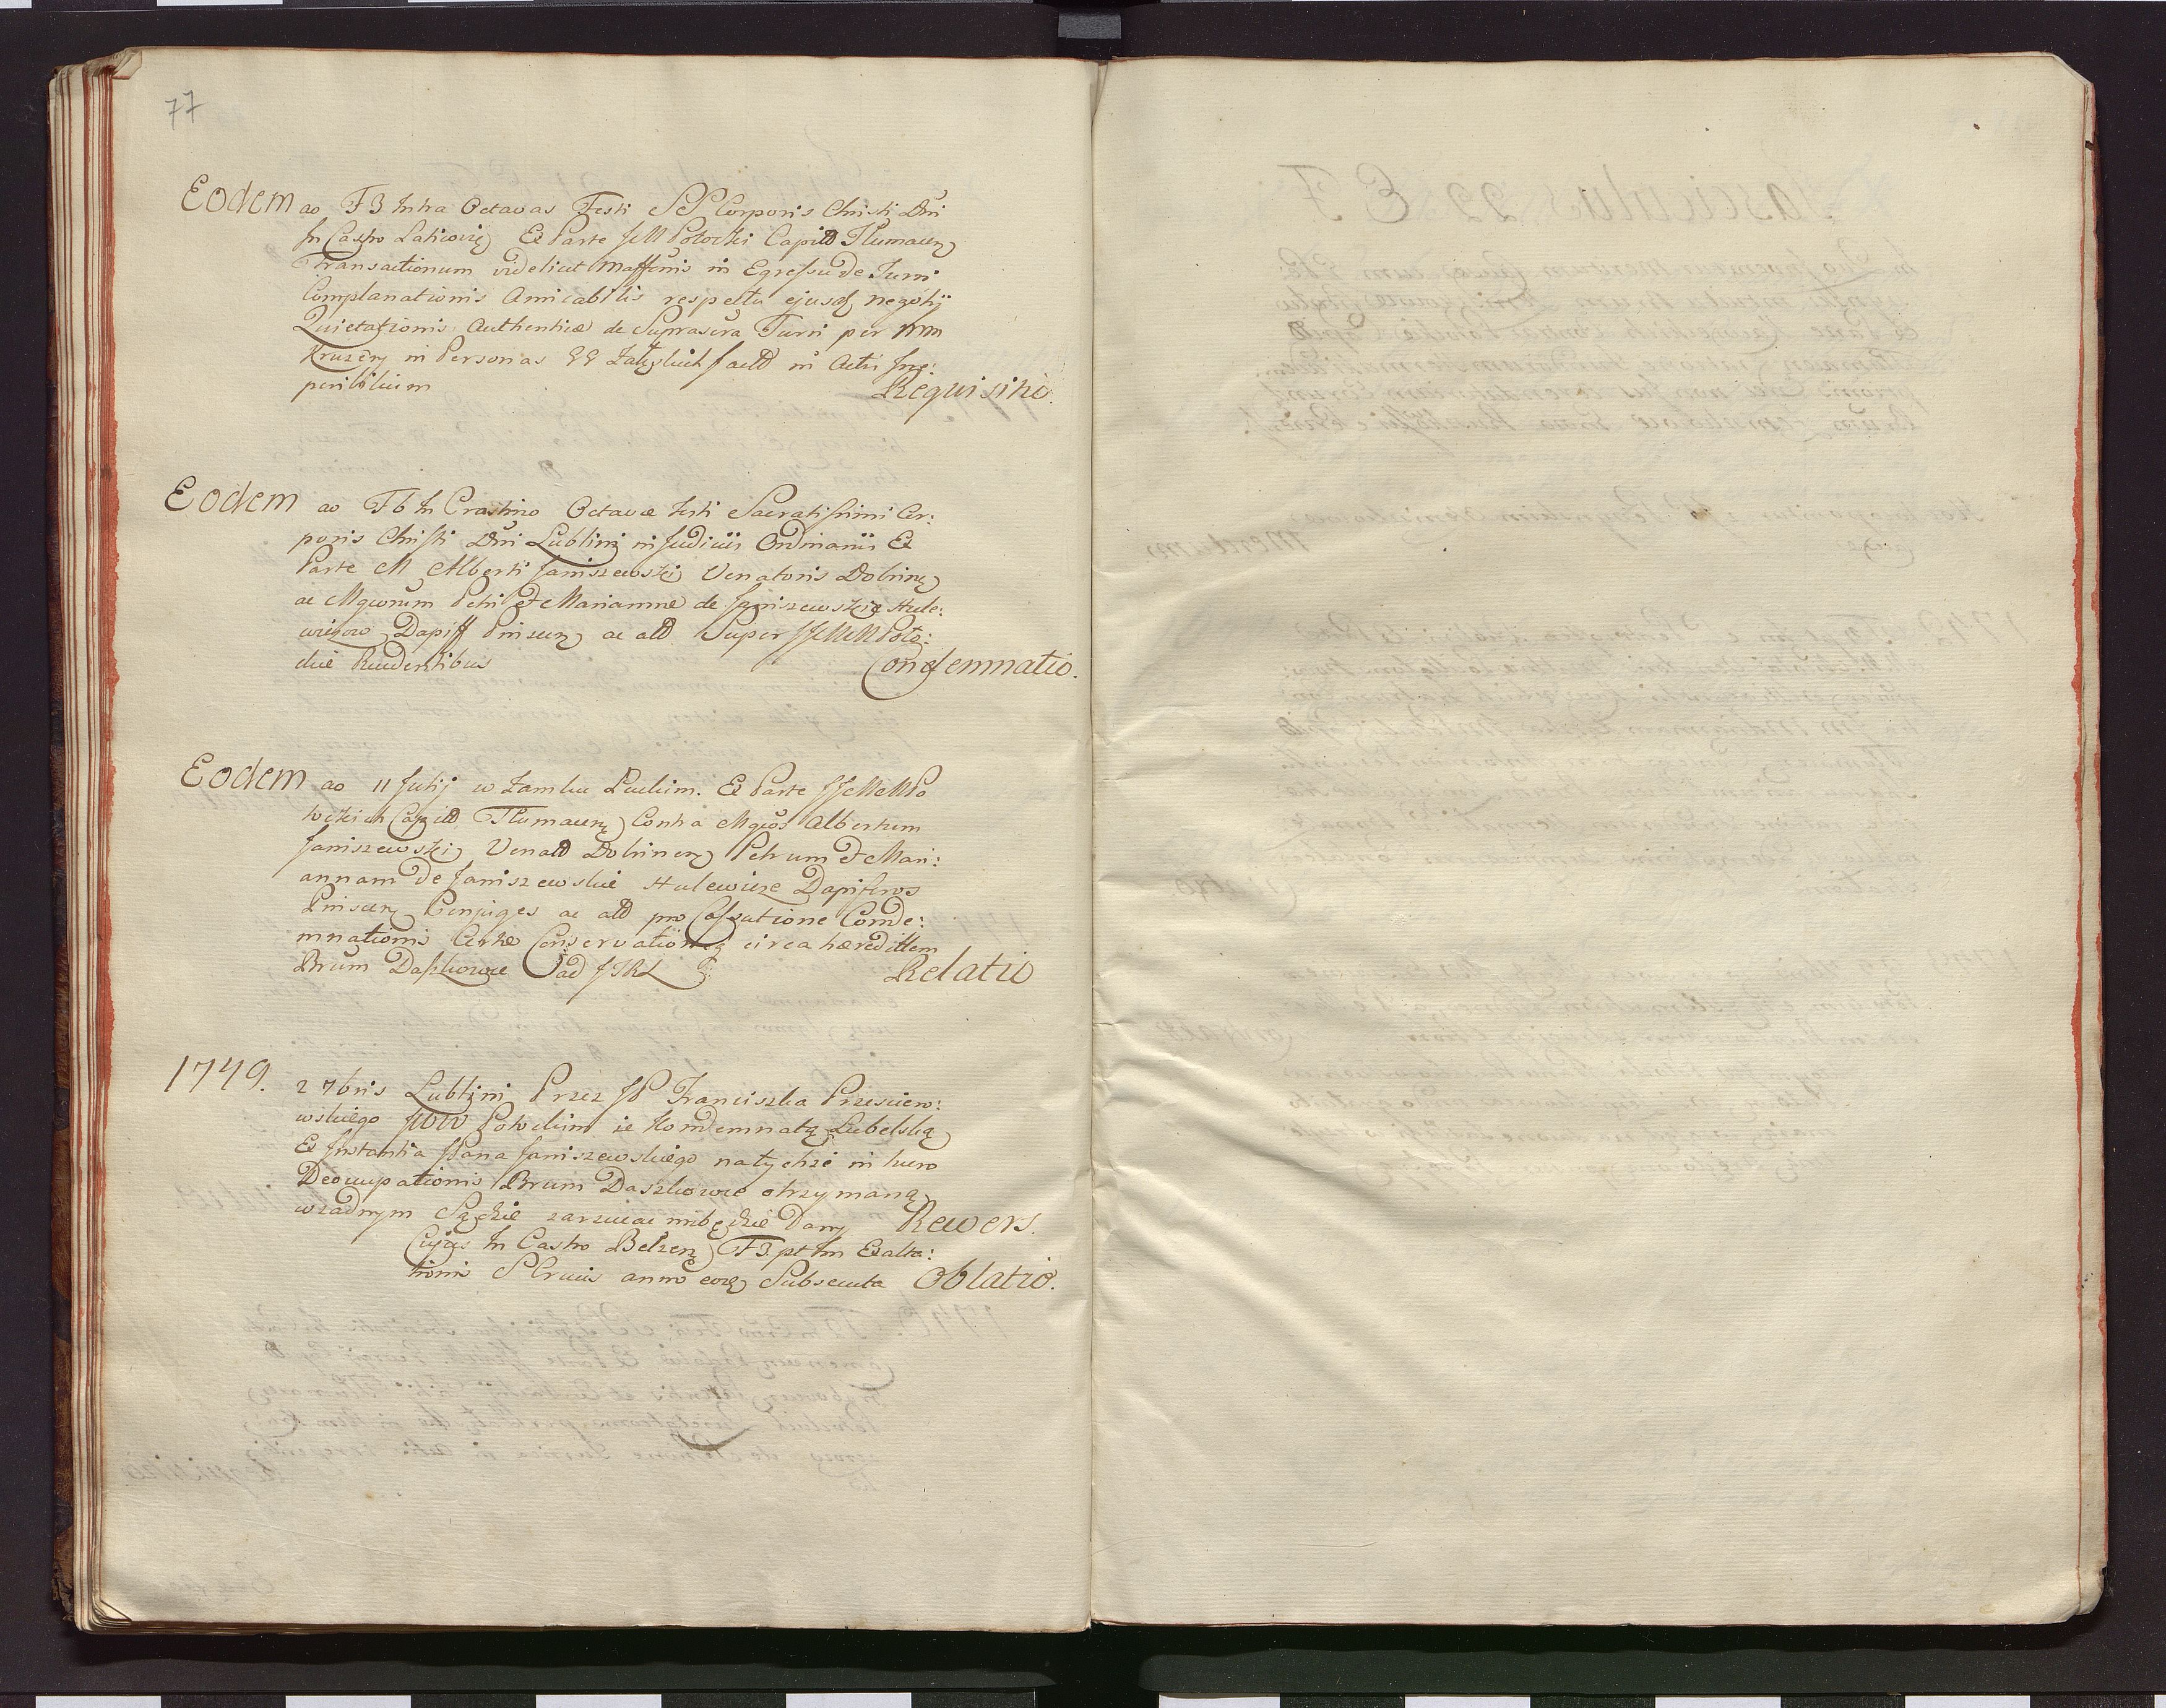 77
Eodem ao F3 Intra Octavas Festi SS Corporis Christi Dni
In Castro Laticovię Ex Parte JM Potocki Capitt Tłumacen
Transactionum videlicet in Egressu de Turri
Complanationis Amicabilis respectu ejusd negotij
Quietationis Authenticæ de Suprascra Turri per Mm
in Personas factt in Actis Ire:
peribilium Requisitio.
Eodem ao F6 In Crastino Octavæ Festi Sacratissimi Cor:
poris Christi Dni Lublini in Judiciis Ordinariis Ex
Parte M Alberti Janiszewski Venatoris Dobrinen
ac Mgcorum Petri et Mariannæ de Janiszewskie Hule:
wiczow Dapiff Pinscen ac att Super JJMMM Poto:
ckie Recudentibus Condemnatio.
Eodem ao 11 Julij w Zamku Ex Parte JJMMM Po
tockich Capitt Tłumacen Contra Mgcos Albertum
Janiszewski Venatt Dobrinen Petrum et Mari:
annam de Janiszewskie Hulewicze Dapiferos
Pinscen Conjuges ac att pro Cassatione Conde:
mnationis Certæ Conservationeq circa hæredittem
Bnum Daszkowce ad JTRL Relatio
1749. 2 7bris Lublini Przez JP Franciszka
wskiego JWW Potockim ze Kondemnatą Lubelską
Ex Instantia JPana Janiszewskiego na tychże in puro
Deoccupationis Bnum Daszkowce otrzymaną
w żadnym Sądzie zarzucac niebędzie Dany Rewers.
Cujus In Castro Belzen F3 pt fm Exalta:
tionis S Crucis anno eod Subsecuta Oblatio.